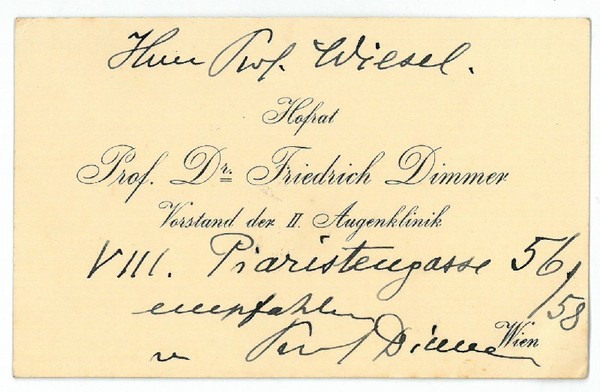 Herrn Prof. Wiesel.
Hofrat
Prof. Dr. Friedrich Dimmer
Vorstand der II. Augenklinik
VIII. Piaristengasse 56/58
empfohlen
v Prof Dimmer
Wien